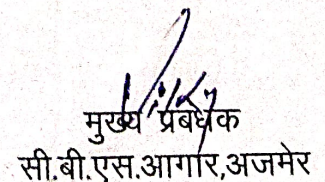 मुख्य प्रबंधक
सी.बी.एस.आगार,अजमेर